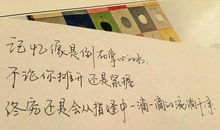 记忆像是倒在掌心的水
不论你摊开还是紧握
终究还是会从指缝中一滴一滴的流淌干净